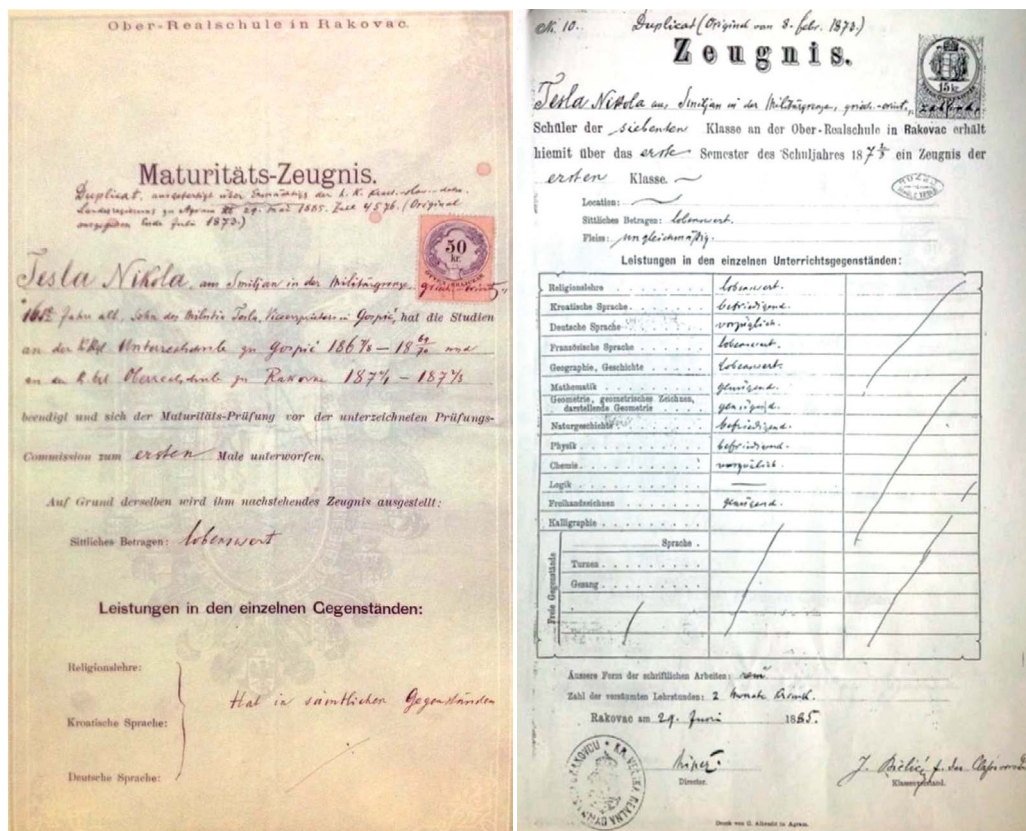 Ober-Realschule in Rakovac.
Maturitäts-Zeugnis.
Duplicat, ausgefertigt über Ermächtig. der k. k. kroat.-slav.-dalm.
Landesregierung zu Agram 29. Mai 1885. Zahl 4576. (Original
ausgegeben Ende Juli 1873.)
50
kr.
Tesla Nikola, aus Smiljan in der Militärgrenze, griech.-orient.,
Jahre alt, Sohn des Milutin Tesla, in Gospić, hat die Studien
an der Unterrealschule zu Gospić 186 – 18 69/70 und
an der Oberrealschule zu Rakovac 187 – 187 2/3
beendigt und sich der Maturitäts-Prüfung vor der unterzeichneten Prüfungs-
Commission zum ersten Male unterworfen.
Auf Grund derselben wird ihm nachstehendes Zeugnis ausgestellt:
Sittliches Betragen: lobenswert
Leistungen in den einzelnen Gegenständen:
Religionslehre:
Hat in sämtlichen Gegenständen
Kroatische Sprache:
Deutsche Sprache:
N. 10. Duplicat (Original vom 8. Febr. 1873.)
Zeugnis.
15 kr.
Tesla Nikola aus Smiljan in der Militärgrenze, griech.-orient., zahlend.
Schüler der siebenten Klasse an der Ober-Realschule in Rakovac erhält
hiemit über das erste Semester des Schuljahres 187 2/3 ein Zeugnis der
ersten Klasse.
Location:
Sittliches Betragen: lobenswert.
Fleiss: ungleichmäßig.
Leistungen in den einzelnen Unterrichtsgegenständen:
Religionslehre lobenswert.
Kroatische Sprache befriedigend.
Deutsche Sprache vorzüglich.
Französische Sprache lobenswert.
Geographie, Geschichte lobenswert.
Mathematik genügend.
Geometrie, geometrisches Zeichnen,
darstellende Geometrie genügend.
Naturgeschichte befriedigend.
Physik befriedigend.
Chemie vorzüglich.
Logik —
Freihandzeichnen genügend.
Kalligraphie
Freie Gegenstände
Sprache
Turnen
Gesang
Äussere Form der schriftlichen Arbeiten: rein
Zahl der versäumten Lehrstunden: 2 Monate krank.
Rakovac am 29. Juni 1885.
Director.
J. Bielić f. den Classenvorst.
Klassenvorstand.
RAKOVCU • KR. VELIKA REALNA
Druck von C. Albrecht in Agram.